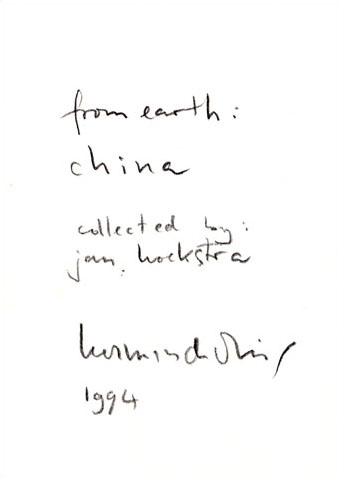 from earth:
china
collected by:
jan hoekstra
herman de vries
1994